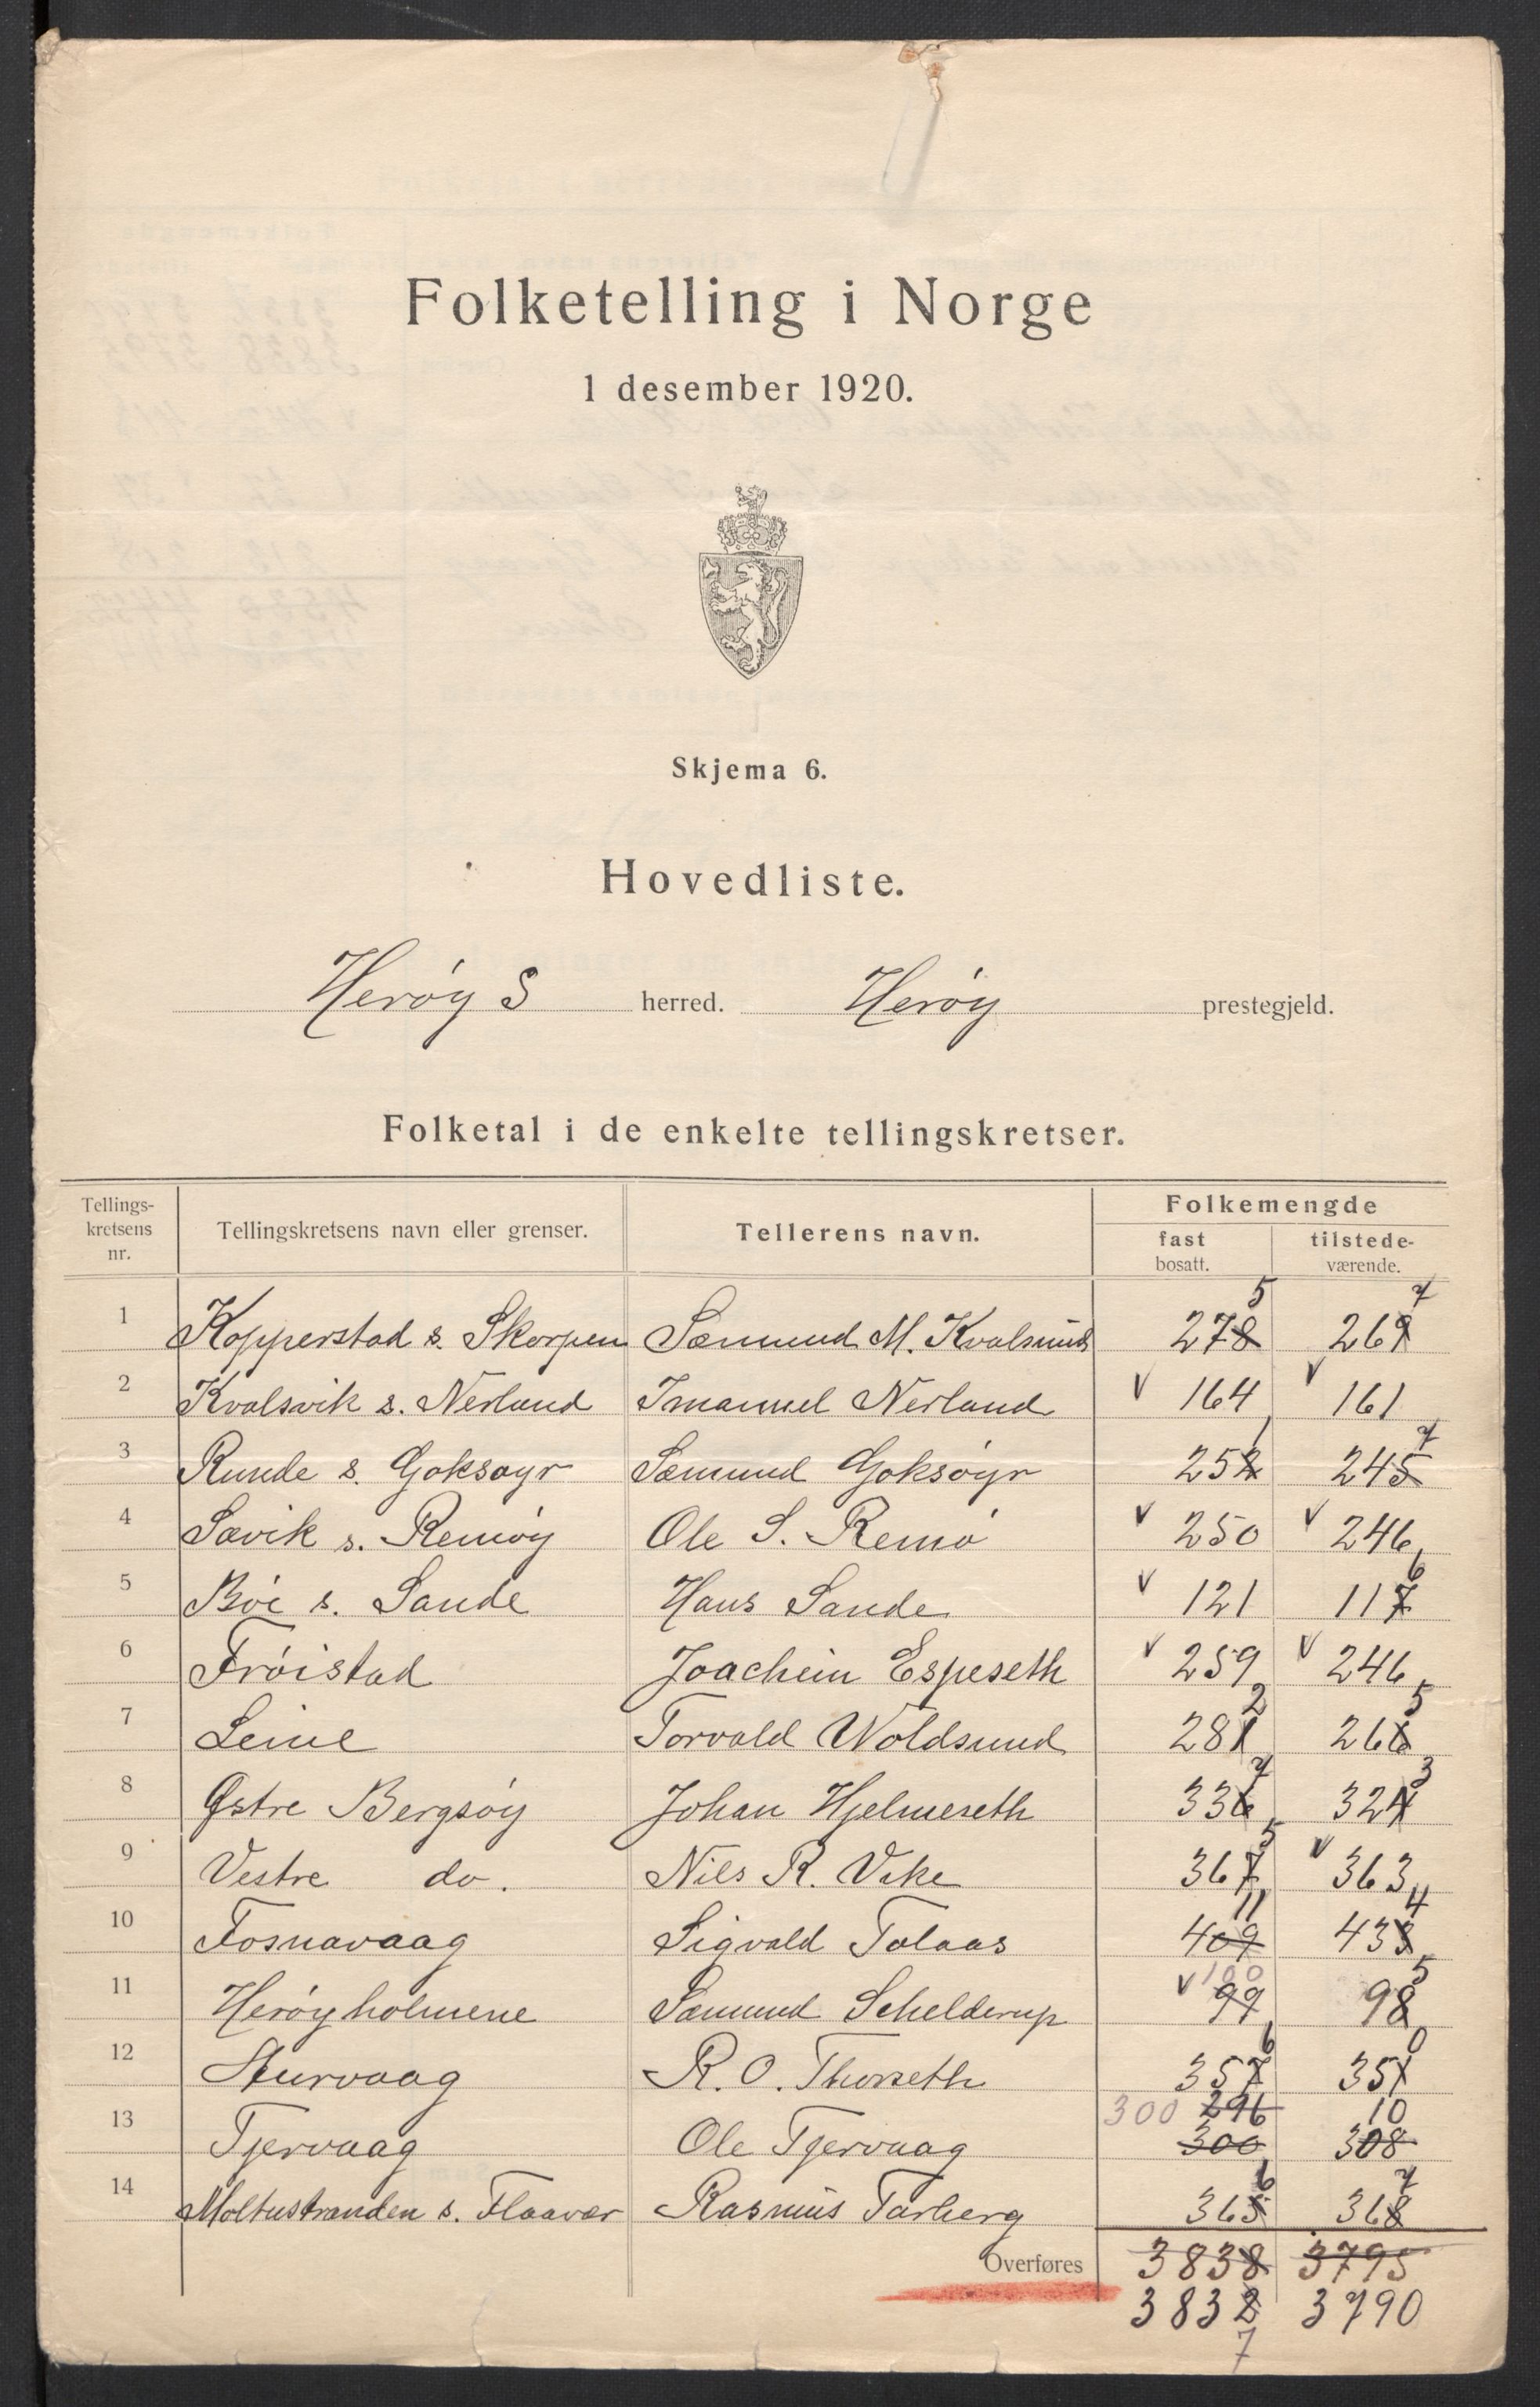 Folketelling i Norge
1 desember 1920.
Skjema 6.
Hovedliste.
Herøy S herred. Herøy prestegjeld.
Folketal i de enkelte tellingskretser.
Tellings-kretsens nr. Tellingskretsens navn eller grenser. Tellerens navn. Folkemengde
fast bosatt. tilstede-værende.
5 7
1 Kopperstad s. Skorpen Sæmund M. Kvalsund 278 269
2 Kvalsvik s. Nerland Imanuel Nerland V 164 V 161
1 7
3 Runde s. Goksøyr Sæmund Goksøyr 252 245
4 Sævik s. Remøy Ole S. Remø V 250 V 246
6
5 Bøe s. Sande Hans Sande V 121 117
6 Frøistad Joachim Espeseth V 259 V 246
2 5
7 Leine Torvald Woldsund 281 266
7 3
8 Østre Bergsøy Johan Hjelmeseth 336 324
5
9 Vestre do. Nils R. Vike 367 V 363
11 4
10 Fosnavaag Sigvald Tolaas 409 433
100 5
11 Herøyholmene Sæmund Schelderup V 99 98
6 0
12 Sturvaag R. O. Thorseth 357 351
300 296 10
13 Tjervaag Ole Tjervaag 300 308
6 7
14 Moltustranden s. Flaavær Rasmus Tarberg 365 368
Overføres 3838 3795
3832 3790
7